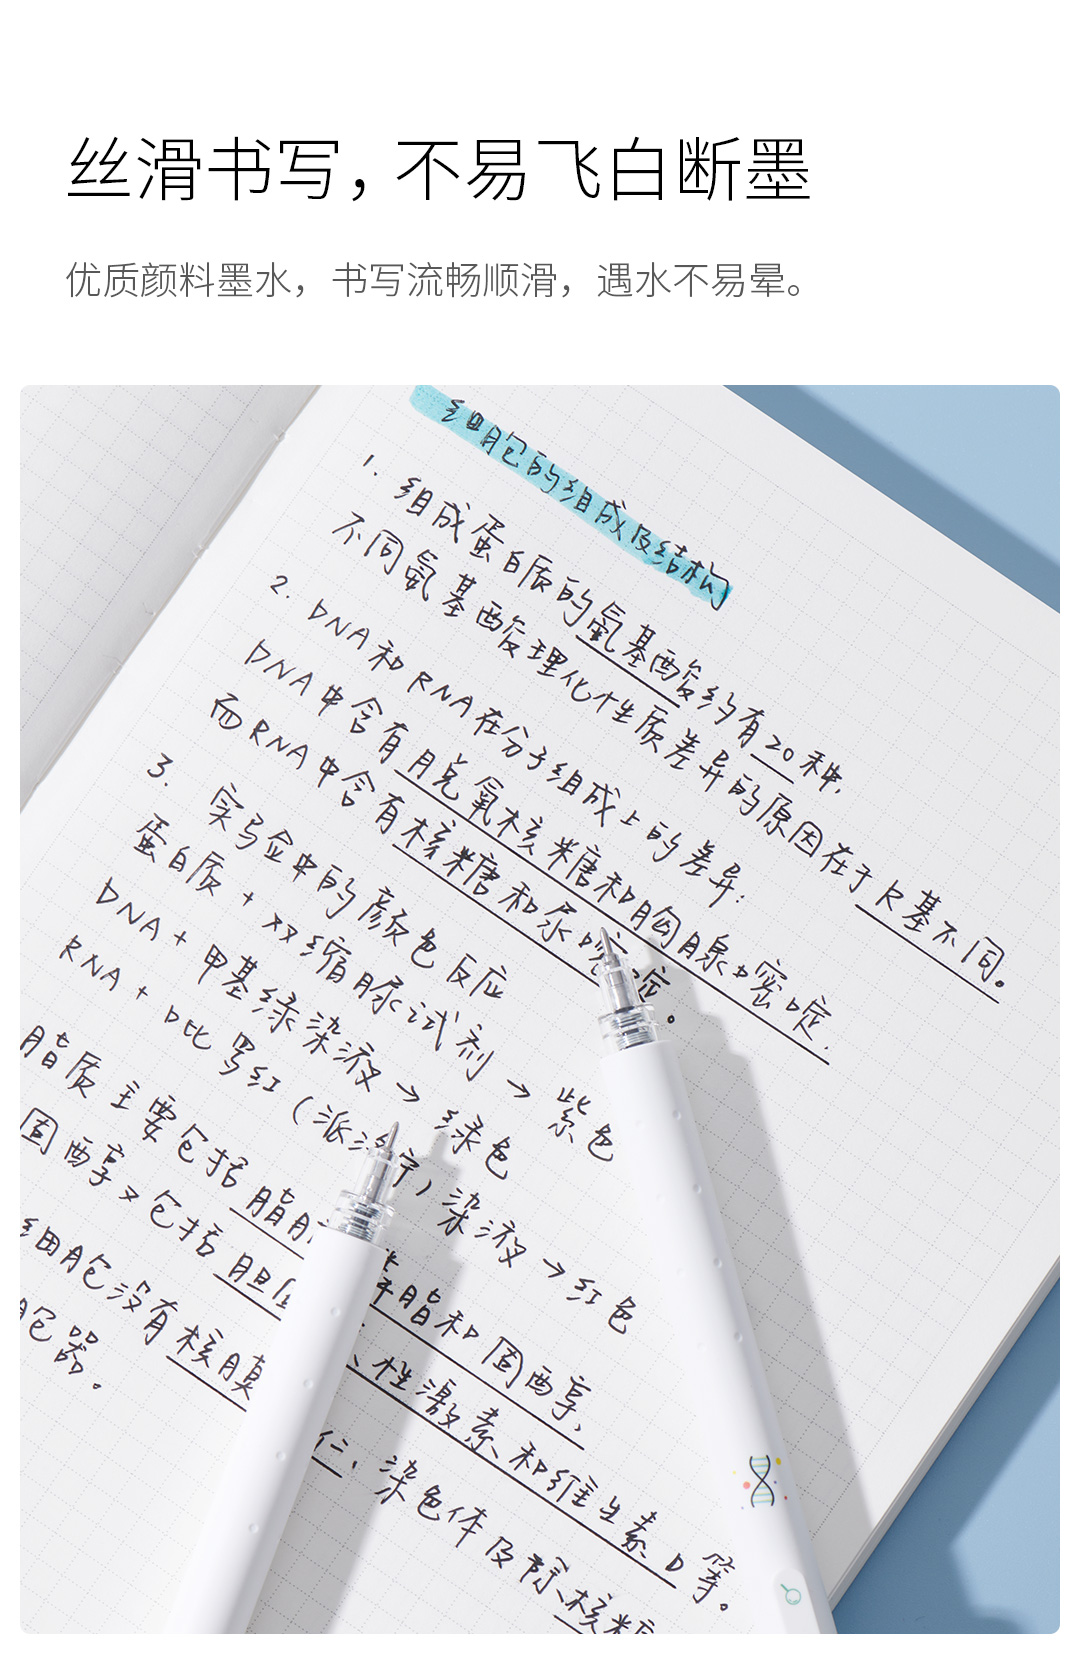 丝滑书写，不易飞白断墨
优质颜料墨水，书写流畅顺滑，遇水不易晕。
细胞的组成及结构
1. 组成蛋白质的氨基酸约有20种，
不同氨基酸理化性质差异的原因在于R基不同。
2. DNA和RNA在分子组成上的差异：
DNA中含有脱氧核糖和胸腺嘧啶.
而RNA中含有核糖和尿嘧啶。
3. 实验中的颜色反应
蛋白质 + 双缩脲试剂 → 紫色
DNA + 甲基绿染液 → 绿色
RNA + 吡罗红（派洛宁）染液 → 红色
脂质主要包括脂肪 类脂和固醇，
固醇又包括胆固 、性激素和维生素D等。
细胞没有核膜 仁、染色体及除核糖
胞器。